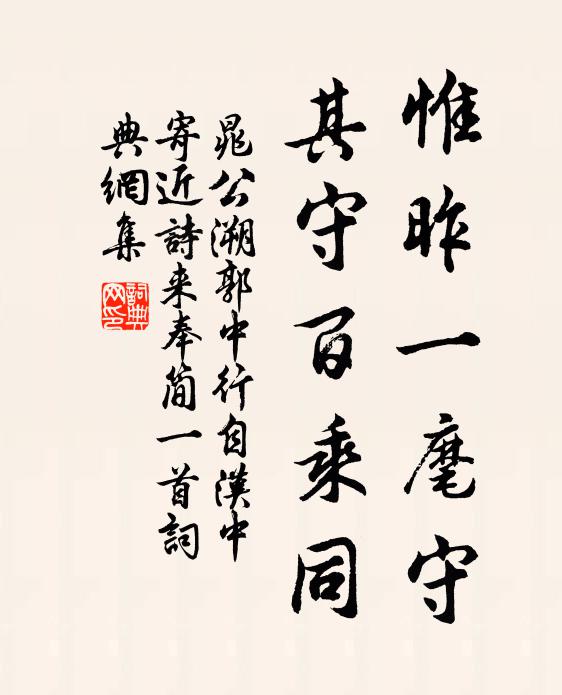 惟昨一麾守
其守百乘同
晁公溯郭中行自漢中
寄近詩来奉簡一首詞
典網集
詞典网印